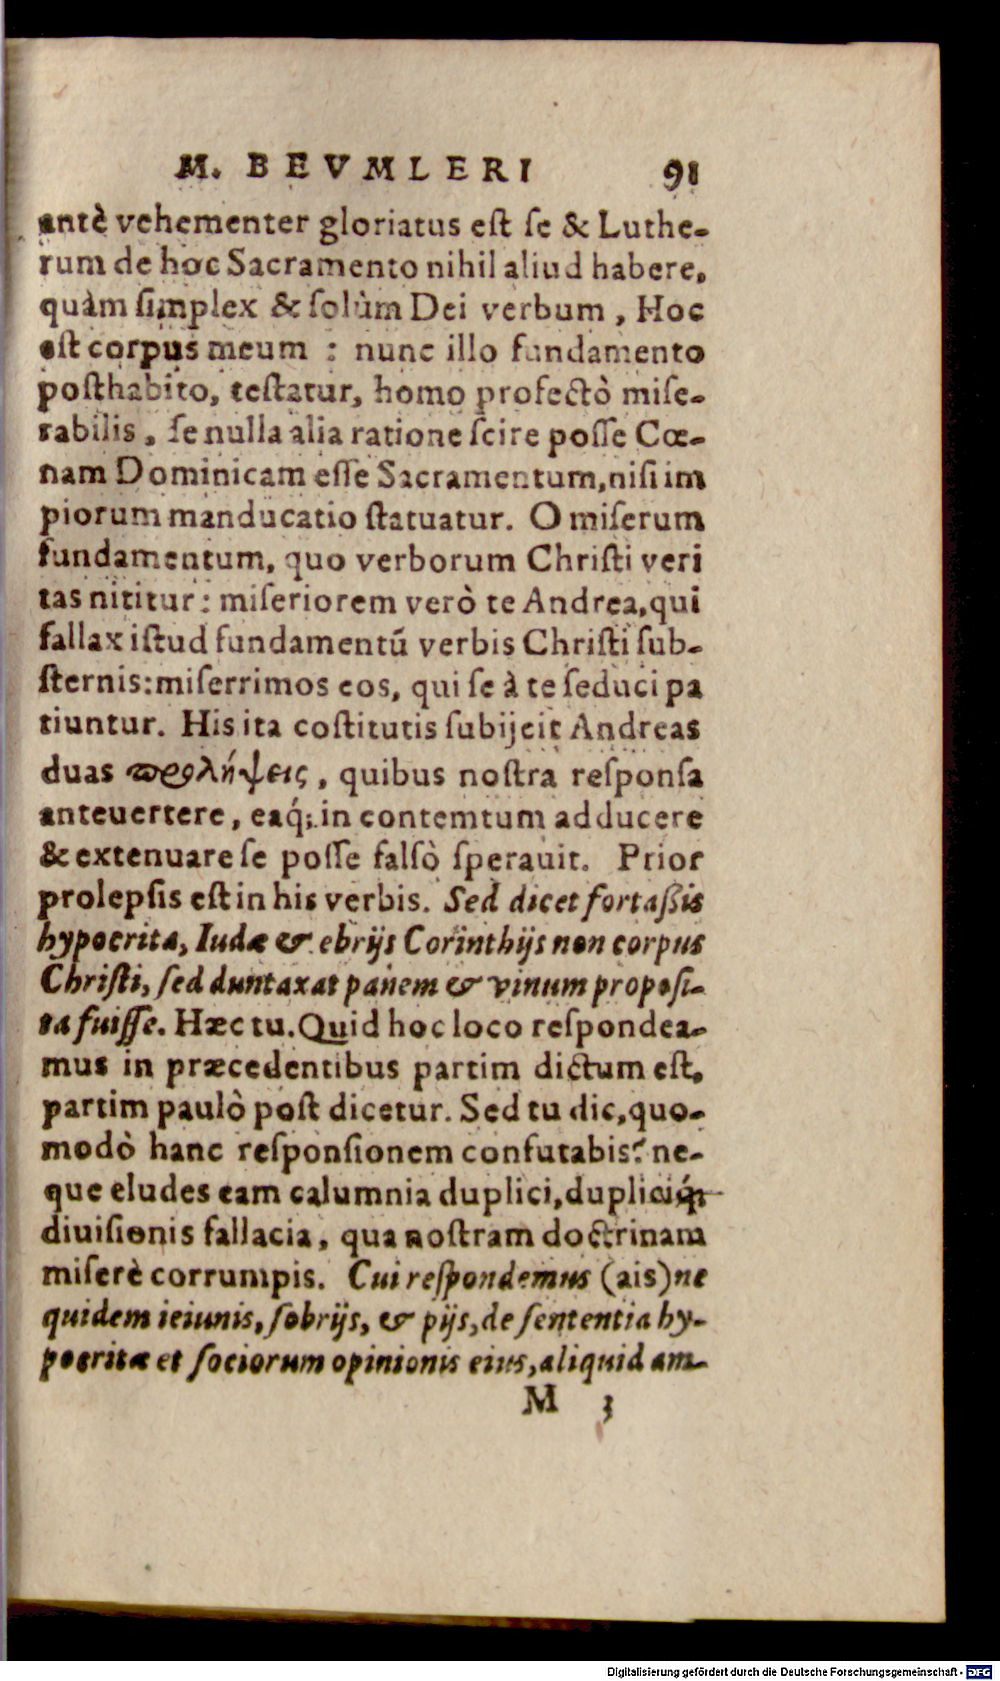 M. BEVMLERI 91
antè vehementer gloriatus est se & Luthe-
rum de hoc Sacramento nihil aliud habere,
quàm simplex & solùm Dei verbum, Hoc
est corpus meum : nunc illo fundamento
posthabito, testatur, homo profectò mise-
rabilis, se nulla alia ratione scire posse Cœ-
nam Dominicam esse Sacramentum, nisi im
piorum manducatio statuatur. O miserum
fundamentum, quo verborum Christi veri
tas nititur: miseriorem verò te Andrea, qui
fallax istud fundamentũ verbis Christi sub-
sternis: miserrimos eos, qui se à te seduci pa
tiuntur. His ita costitutis subijcit Andreas
duas προλήψεις, quibus nostra responsa
anteuertere, eaq́; in contemtum adducere
& extenuare se posse falsò sperauit. Prior
prolepsis est in his verbis. Sed dicet fortaßis
hypocrita, Iudæ & ebrijs Corinthijs non corpus
Christi, sed duntaxat panem & vinum proposi-
ta fuisse. Hæc tu. Quid hoc loco respondea-
mus in præcedentibus partim dictum est,
partim paulò post dicetur. Sed tu dic, quo-
modò hanc responsionem confutabis? ne-
que eludes eam calumnia duplici, dupliciq́;
diuisionis fallacia, qua nostram doctrinam
miserè corrumpis. Cui respondemus (ais) ne
quidem ieiunis, sobrijs, & pijs, de sententia hy-
pocritæ et sociorum opinionis eius, aliquid am-
M 3
Digitalisierung gefördert durch die Deutsche Forschungsgemeinschaft - DFG